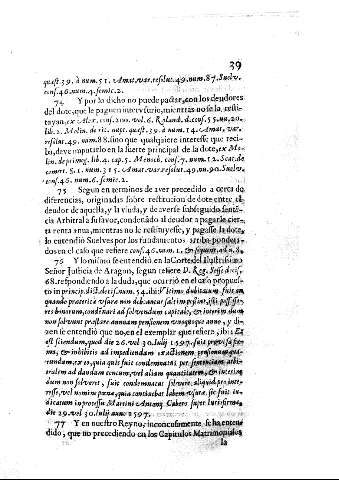 39
quæst. 39. à num. 51. Amat. var. resolut. 49. num. 87. Suelv.
cons. 46. num. 4. semic. 2.
74 Y por lo dicho no puede pactar, con los deudores
del dote, que le paguen interusurio, mientras no se la restituyan,
ex Alex. cons. 200. vol. 6. Roland. d. cons. 55. nu. 20.
lib. 2. Molin. de rit. nupt. quæst. 39. à num. 14. Amat. var.
resol. 49. num. 88. sino que qualquiere interesse que recibo,
deve imputarlo en la suerte principal de la dote, ex Molin.
de primog. lib. 4. cap. 5. Menoch. cons. 7. num. 12.
num. 315. Amat. var. resolut. 49. nu. 90. Suelv.
cons. 46. num. 6. semic. 2.
75 Segun en terminos de aver precedido a cerca de
diferencias, originadas sobre restitucion de dote entre el
deudor de aquella, y la viuda, y de averse subseguido sentencia
Arbitral a su favor, condenádo al deudor a pagarle cierta
renta anua, mientras no le restituyesse, y pagasse la dote,
lo entendió Suelves por los fundamentos arriba ponderados
en el caso que refiere cons. 46. num. 1. & sequen. ad n. 8.
76 Y lo mismo se entendió en la Corte del Ilustrissimo
Señor Justicia de Aragon, segun refiere D. Reg. Sesse decis.
68. respondiendo a la duda, que ocurrió en el caso propuesto
in princip. dict. decis. num. 54. ibi: Vltimo dubitatum fuit an
quando practice usuræ non debeantur salt im
solvendum capitale, & interim dum
non solvunt præstare annuam pensionem usque anno, y dizen
se entendió que no, en el exemplar que refiere, ibi: &
est sciendum, quod die 26. vel 30. Iulij 1597. fuit provisa firma,
& inhibitis ad impediendam exactionem pensionum
ex eo, quia quis fuit condemnatus per sententiam arbitralem
ad dandum censum, vel aliam quantitatem, & interim
dum non solveret, fuit condemnatus solvere aliquid pro interesse,
vel nomine pœnæ, quia contractus labem usuræ, sic fuit iudicatum
in processu Martini Antonij Cabero super iurisfirma,
die 29. vel 30. Iulij anno 1597.
77 Y en nuestro Reyno, inconcusamente, se ha entendido,
que no precediendo en los Capitulos Matrimoniales
la